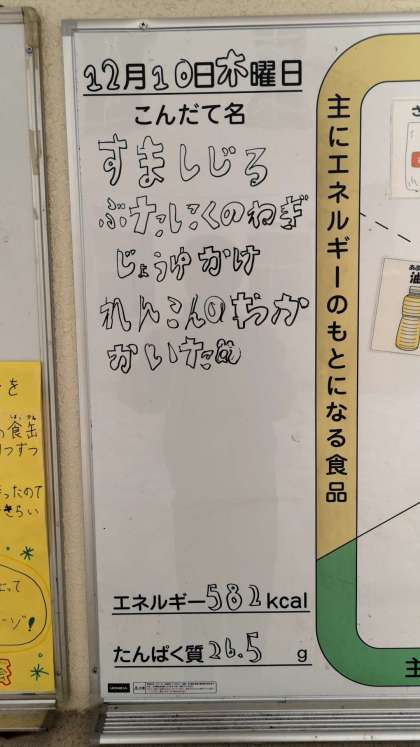 12月10日木曜日
こんだて名
すましじる
ぶたにくのねぎ
じょうゆかけ
れんこんのおか
かいため
エネルギー582kcal
たんぱく質26.5g
主にエネルギーのもとになる食品
油
主
を
の食缶
つすつ
ったので
きらい
って
ーゾ!